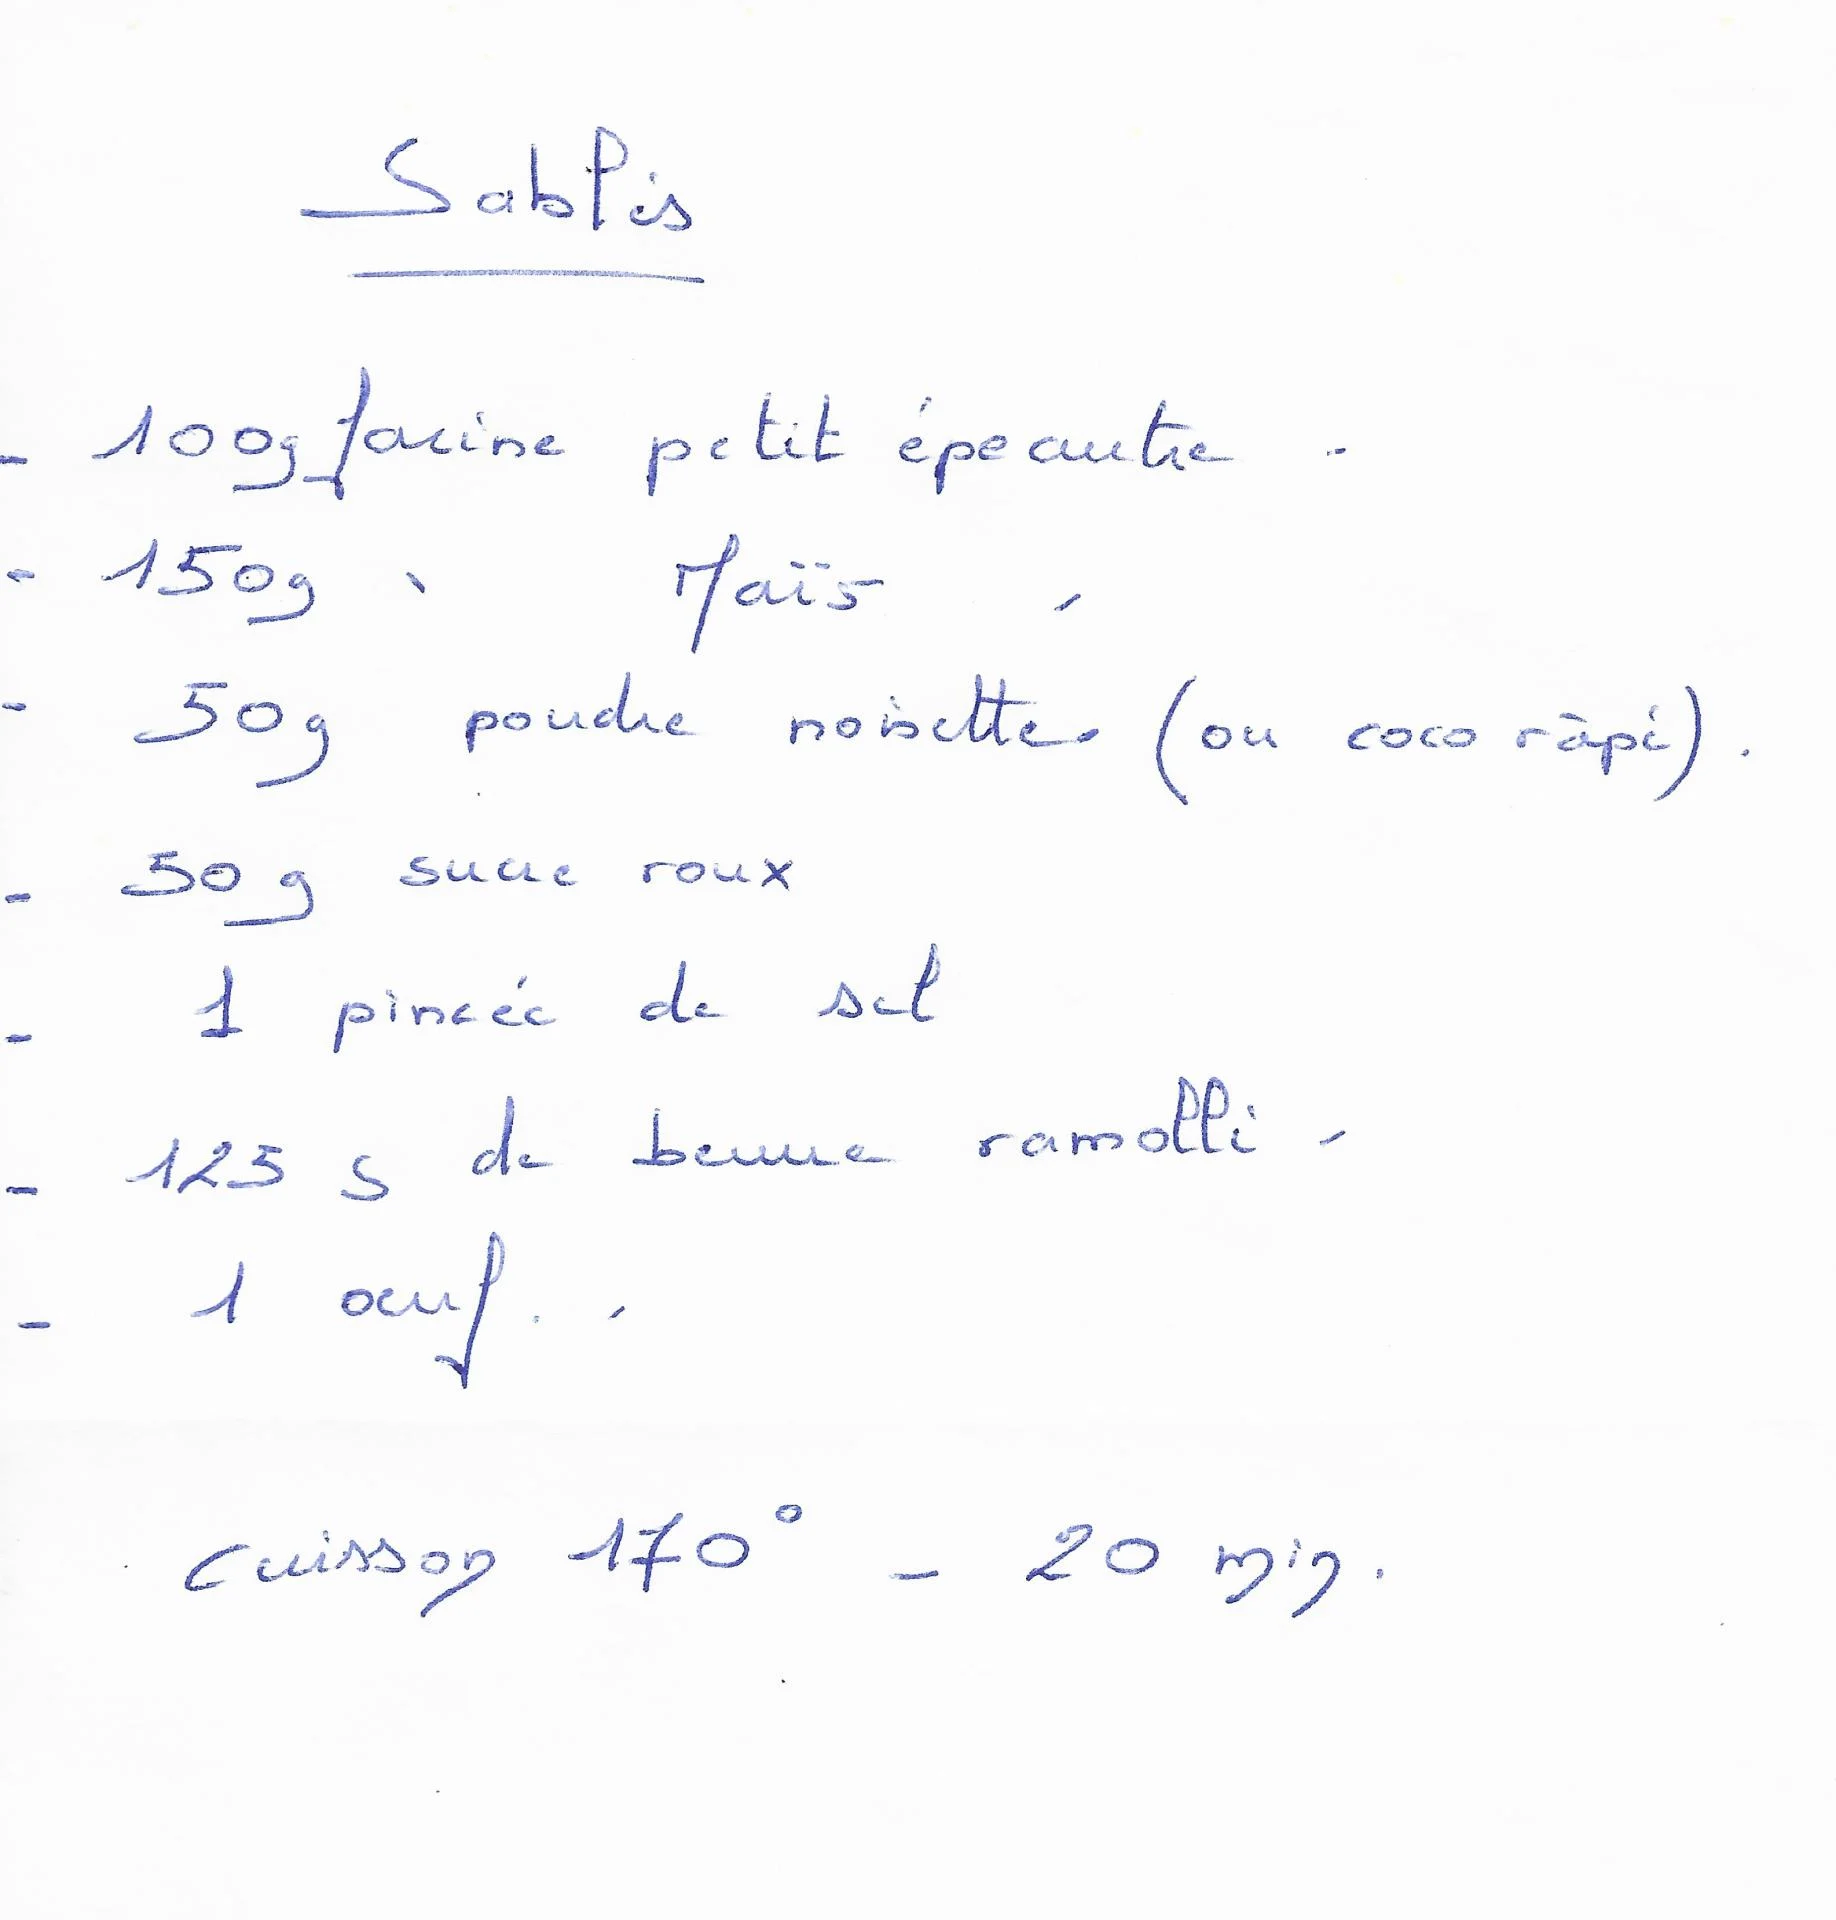 Sablés
- 100g farine petit épeautre.
- 150g " Maïs
- 50g poudre noisettes (ou coco râpé).
- 50g sucre roux
- 1 pincée de sel
- 125 g de beurre ramolli.
- 1 œuf.
cuisson 170° - 20 min.